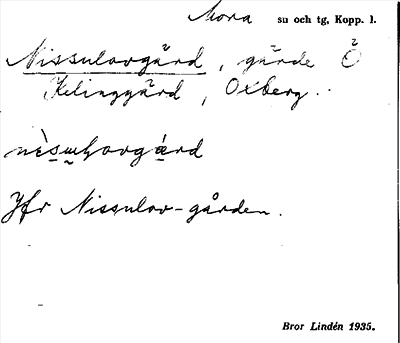 Mora sn och tg, Kopp. l.
Nissulovgård, gärde Ö
Kelinggård, Oxberg.
nèsuɫovgárd
Jfr Nissulov-gården.
Bror Lindén 1935.